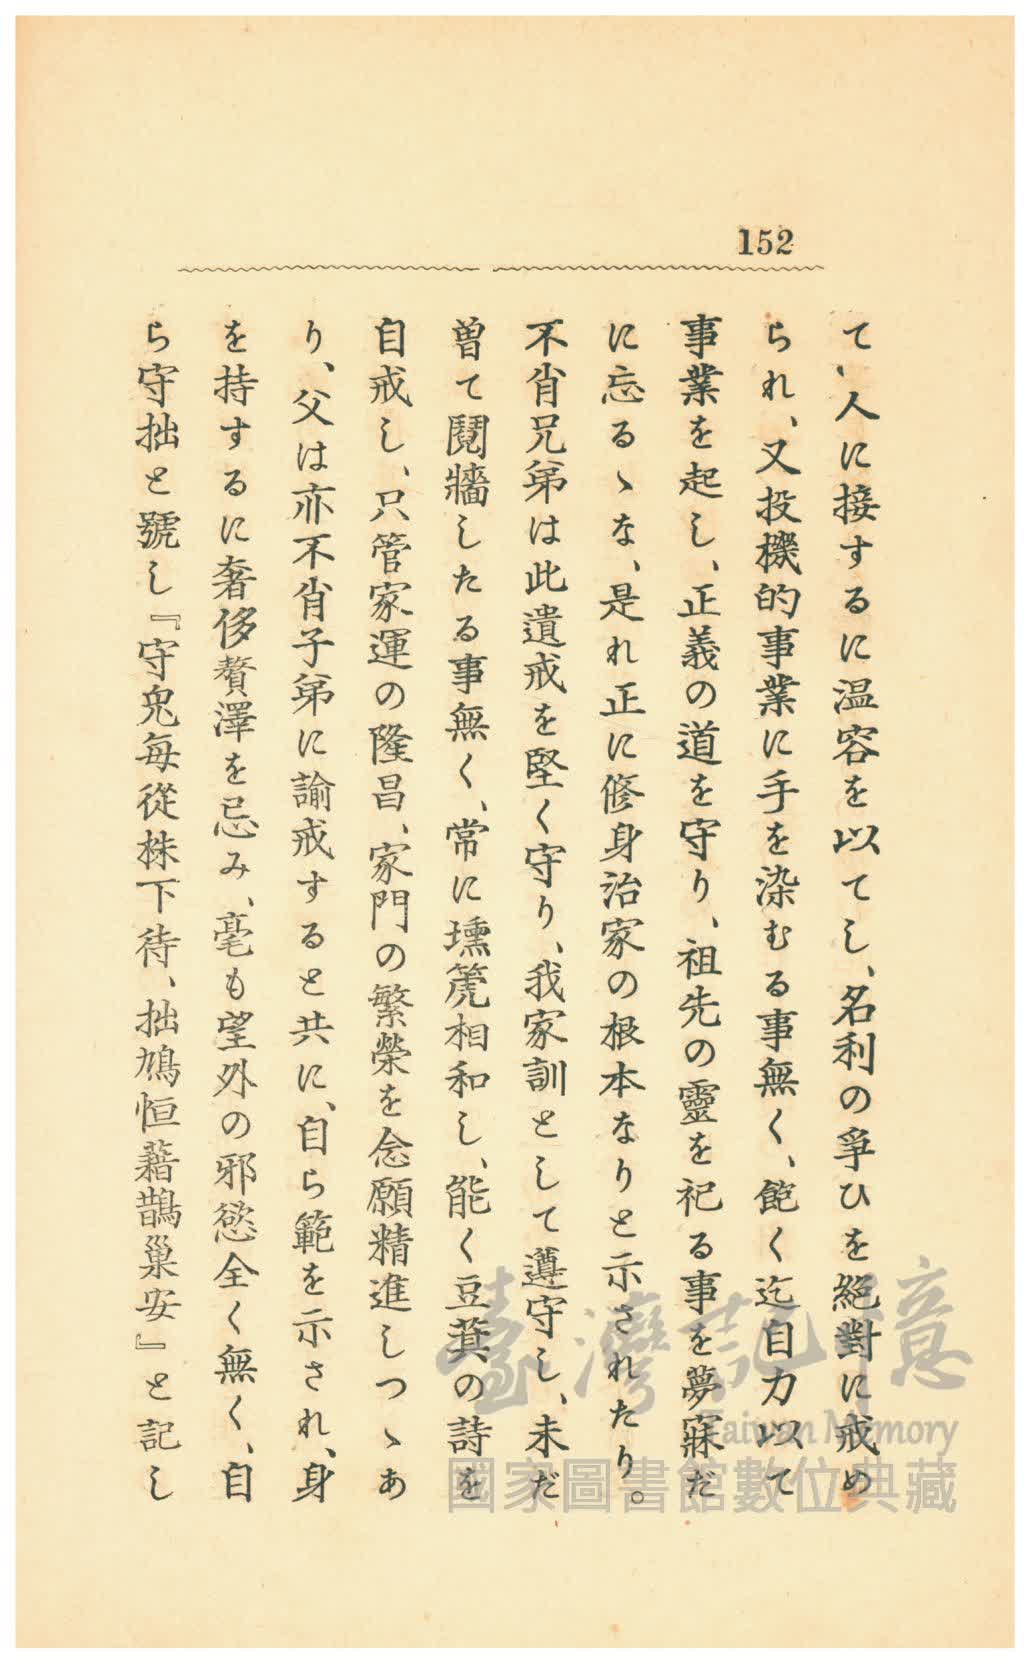 152
て、人に接するに温容を以てし、名利の爭ひを絕對に戒め
られ、又投機的事業に手を染むる事無く、飽く迄自力以て
事業を起し、正義の道を守り、祖先の靈を祀る事を夢寐だ
に忘るゝな、是れ正に修身治家の根本なりと示されたり。
不肖兄弟は此遺戒を堅く守り、我家訓として遵守し、未だ
曾て鬩牆したる事無く、常に壎篪相和し、能く豆萁の詩を
自戒し、只管家運の隆昌、家門の繁榮を念願精進しつゝあ
り、父は亦不肖子弟に諭戒すると共に、自ら範を示され、身
を持するに奢侈贅澤を忌み、毫も望外の邪慾全く無く、自
ら守拙と號し『守兎每從株下待、拙鳩恒藉鵲巢安』と記し
臺灣記憶
Taiwan Memory
國家圖書館數位典藏